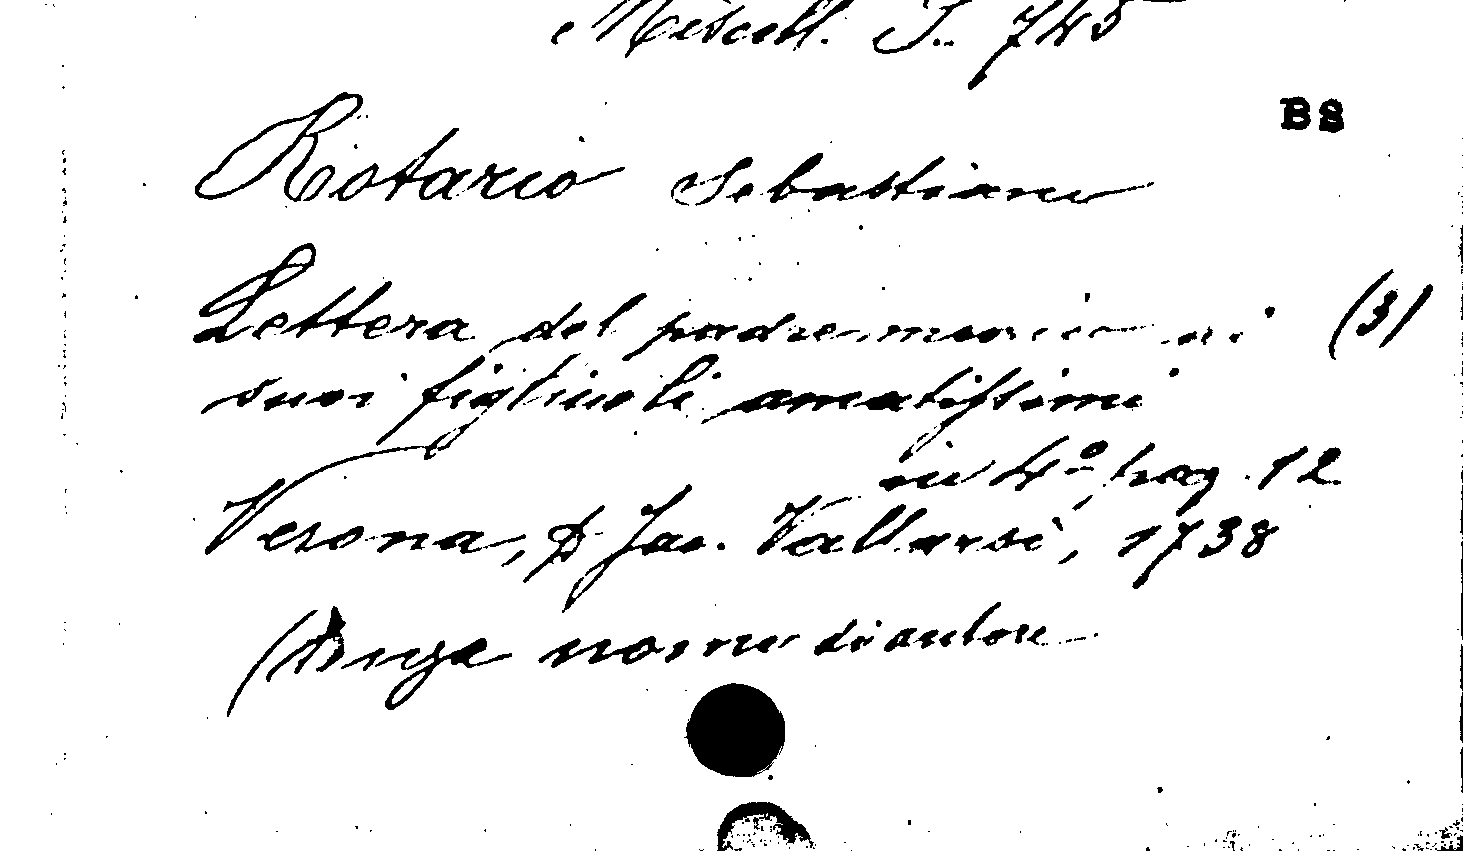 Miscell. I. 745
BS
Rotario Sebastiano
Lettera del padre mario ai (3)
suoi figliuoli amatissimi
in 4º pag. 12
Verona, p Jac. Vallarsi, 1738
(senza nome di autore